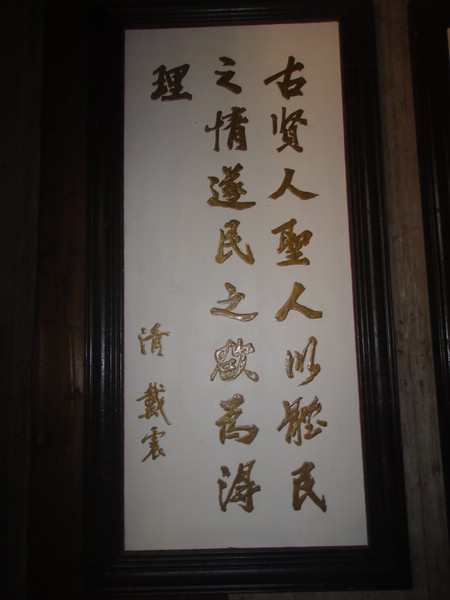 古贤人聖人以體民
之情遂民之欲爲得
理
清 戴震